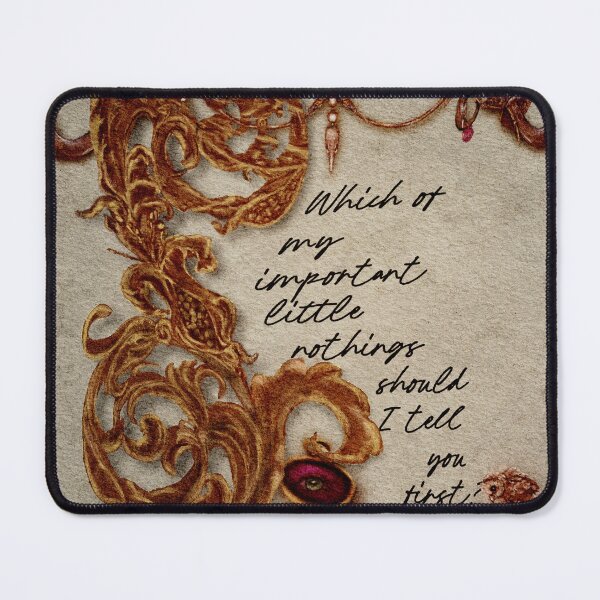 Which of
my
important
little
nothings
should
I tell
you
first